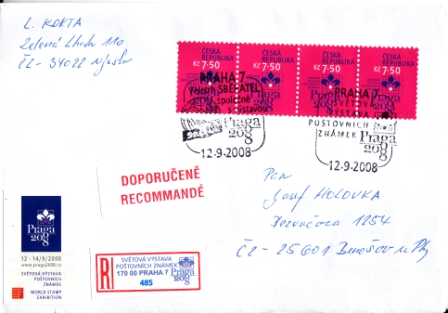 L. KOKTA
Zelená Lhota 110
CZ-34022 Nýrsko
ČESKÁ REPUBLIKA KČ 7·50
ČESKÁ REPUBLIKA KČ 7·50
ČESKÁ REPUBLIKA KČ 7·50
ČESKÁ REPUBLIKA KČ 7·50
PRAHA 7
SBĚRATEL
společně
s výstavou
Praga
2008
12-9-2008
PRAHA 7
SVĚTOVÁ
VÝSTAVA
POŠTOVNÍCH
ZNÁMEK Praga
2008
12-9-2008
DOPORUČENĚ
RECOMMANDÉ
Pan
Josef HOLOVKA
1254
CZ-25601 Benešov u Phy
Praga
2008
12 - 14/9/2008
www.praga2008.cz
SVĚTOVÁ VÝSTAVA
POŠTOVNÍCH
ZNÁMEK
WORLD STAMP
EXHIBITION
R
SVĚTOVÁ VÝSTAVA
POŠTOVNÍCH ZNÁMEK
170 00 PRAHA 7
485
Praga
2008